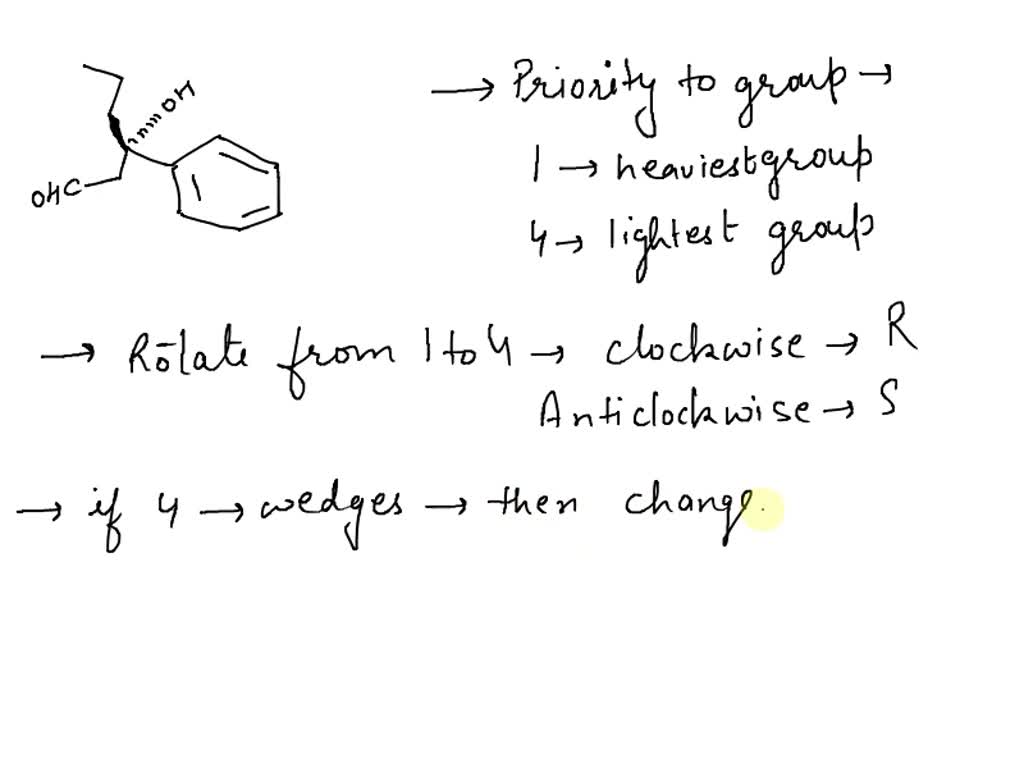 OH
OHC
→ Priority to group →
1 → heaviest group
4 → lightest group
→ Rotate from 1 to 4 → clockwise → R
Anticlockwise → S
→ if 4 → wedges → then change.